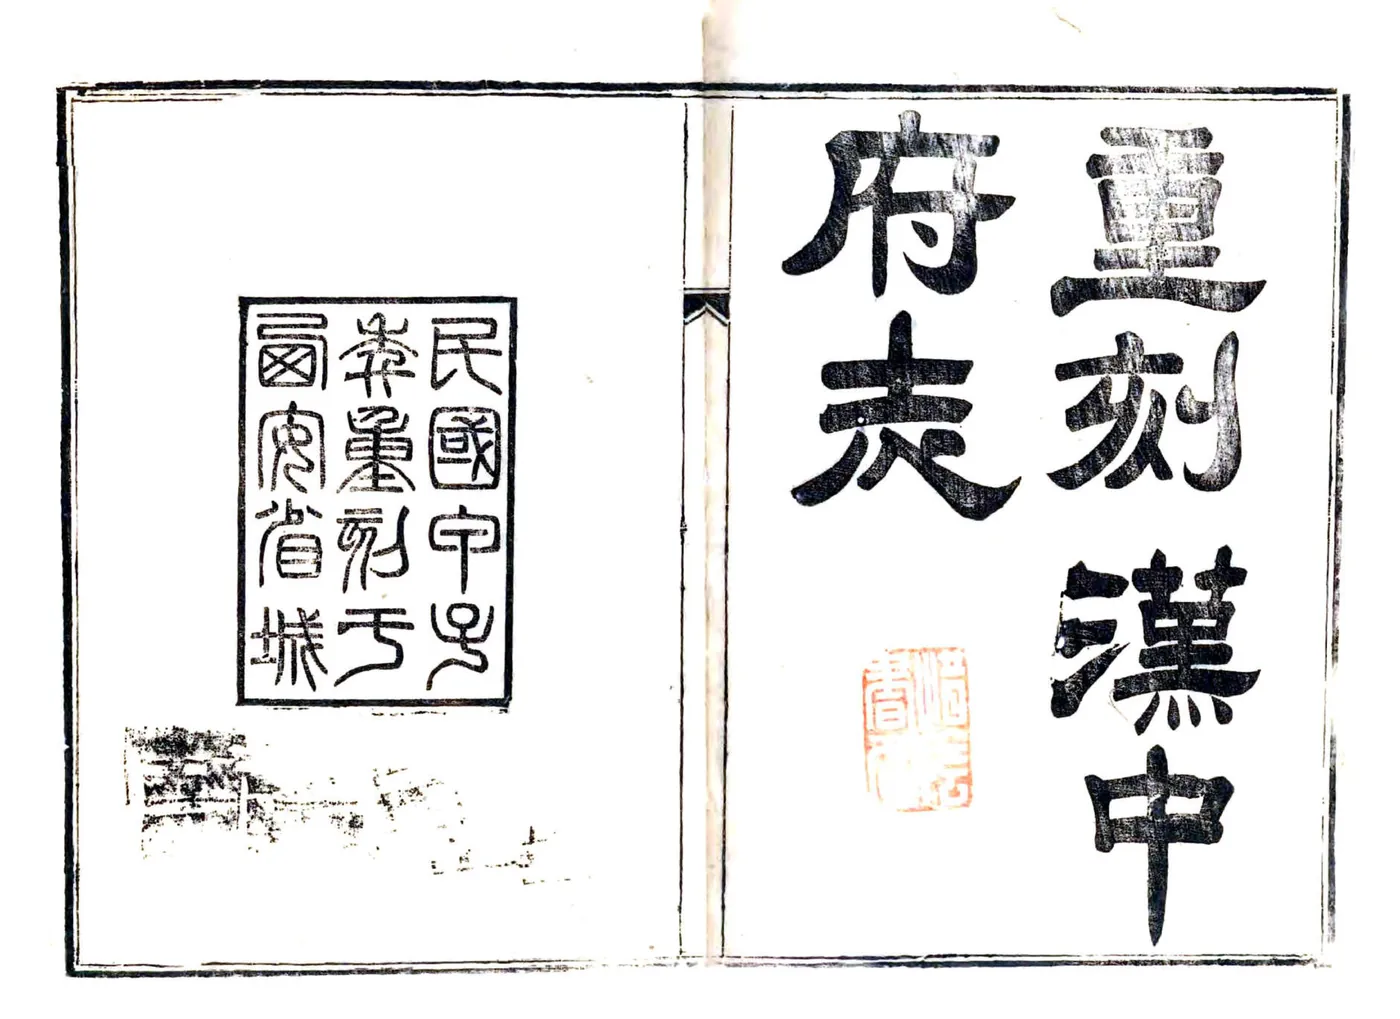 重刻漢中
府志
民國甲子
秊重刻于
西安省城